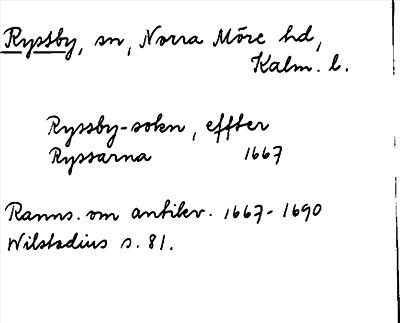 Ryssby, sn, Norra Möre hd,
Kalm. l.
Ryssby-soken, effter
Ryssarna 1667
Ranns. om antikv. 1667-1690
Wilstadius s. 81.